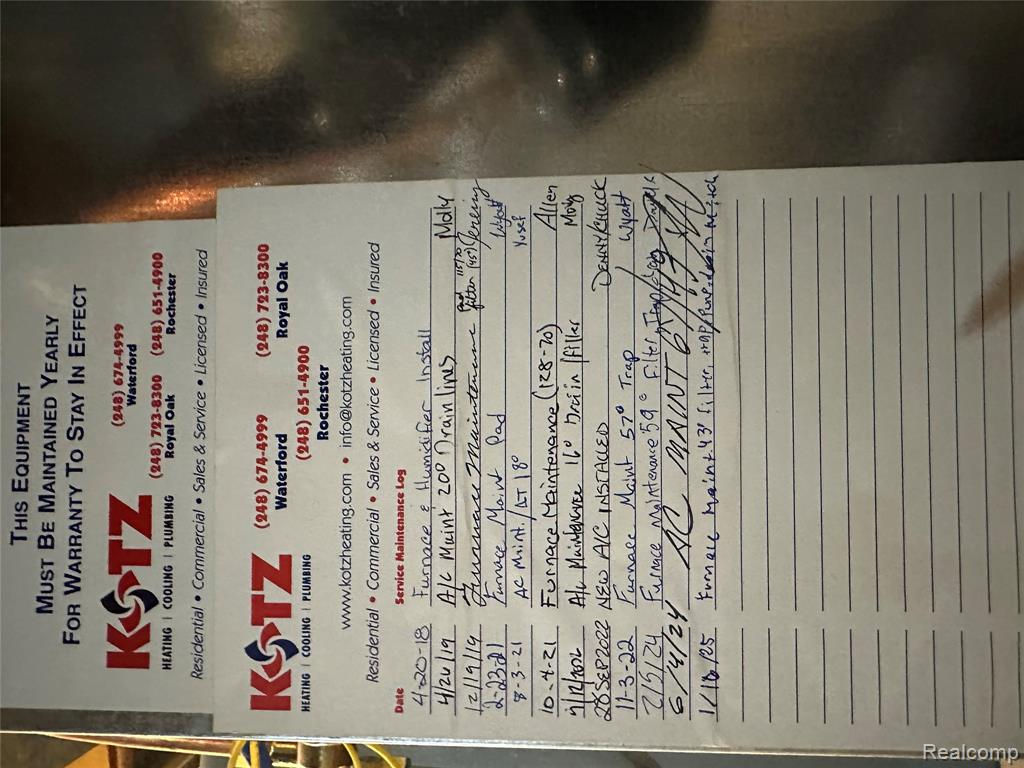 THIS EQUIPMENT
MUST BE MAINTAINED YEARLY
FOR WARRANTY TO STAY IN EFFECT
KOTZ
HEATING | COOLING | PLUMBING
(248) 674-4999
Waterford
(248) 723-8300 (248) 651-4900
Royal Oak Rochester
Residential • Commercial • Sales & Service • Licensed • Insured
KOTZ
HEATING | COOLING | PLUMBING
(248) 674-4999 (248) 723-8300
Waterford Royal Oak
(248) 651-4900
Rochester
www.kotzheating.com • info@kotzheating.com
Residential • Commercial • Sales & Service • Licensed • Insured
Date Service Maintenance Log
4-20-18 Furnace & Humidifer Install
4/20/19 A/C Maint 20° Drain lines Molly
12/19/19 Furnace Maintenance filter Jeremy
2-23-21 Furnace Maint Pad Wyatt
8-3-21 AC Maint. / ΔT 18° Yusef
10-4-21 Furnace Maintenance (128-70) Allen
A/C Maintenance 16° Drain/filter Molly
28 SEP 2022 NEW A/C INSTALLED DENNY/CHUCK
11-3-22 Furnace Maint 57° Trap Wyatt
2/5/24 Furnace Maintenance 59° Filter, Trap
6/4/24 AC MAINT 6/4/24
1/18/25 Furnace Maint 43° filter, trap/Pump
Realcomp